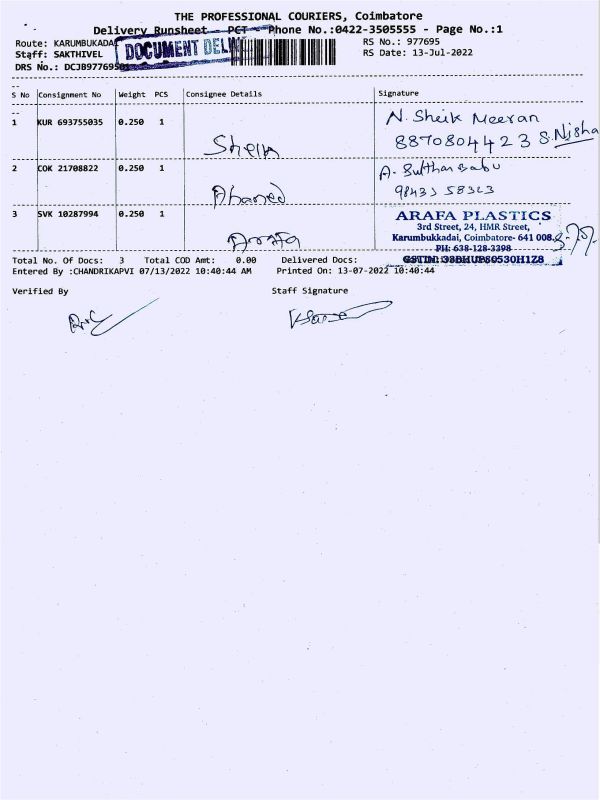 THE PROFESSIONAL COURIERS, Coimbatore
Delivery Runsheet - PCT - Phone No.:0422-3505555 - Page No.:1
Route: KARUMBUKADA
DOCUMENT DELIV
RS No.: 977695
Staff: SAKTHIVEL
RS Date: 13-Jul-2022
DRS No.: DCJ8977695
S No Consignment No Weight PCS Consignee Details Signature
1 KUR 693755035 0.250 1 Sheik N. Sheik Meeran
8870804423 S. Nisha
2 COK 21708822 0.250 1 Ahamed A. Sulthan Babu
98433 58323
3 SVK 10287994 0.250 1 Arafa ARAFA PLASTICS
3rd Street, 24, HMR Street,
Karumbukkadai, Coimbatore- 641 008.
PH: 638-128-3398
Total No. Of Docs: 3 Total COD Amt: 0.00 Delivered Docs:
GSTIN: 33BHUPS0530H1Z8
Entered By :CHANDRIKAPVI 07/13/2022 10:40:44 AM Printed On: 13-07-2022 10:40:44
Verified By Staff Signature